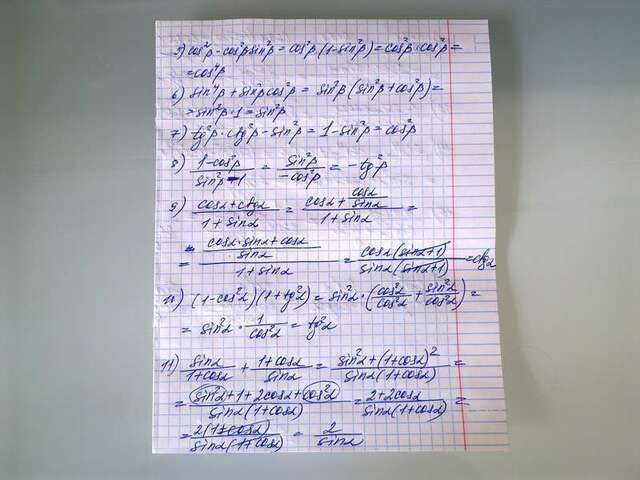 5) cos²β - cos²β sin²β = cos²β (1 - sin²β) = cos²β · cos²β =
= cos⁴β
6) sin⁴β + sin²β cos²β = sin²β (sin²β + cos²β) =
= sin²β · 1 = sin²β
7) tg²β · ctg²β - sin²β = 1 - sin²β = cos²β
8) (1 - cos²β)/(sin²β - 1) = sin²β/(-cos²β) = -tg²β
9) (cosα + ctgα)/(1 + sinα) = (cosα + cosα/sinα)/(1 + sinα) =
= ((cosα · sinα + cosα)/sinα)/(1 + sinα) = (cosα (sinα + 1))/(sinα (sinα + 1)) = ctgα
10) (1 - cos²α)(1 + tg²α) = sin²α · (cos²α/cos²α + sin²α/cos²α) =
= sin²α · 1/cos²α = tg²α
11) sinα/(1 + cosα) + (1 + cosα)/sinα = (sin²α + (1 + cosα)²)/(sinα (1 + cosα)) =
= (sin²α + 1 + 2cosα + cos²α)/(sinα (1 + cosα)) = (2 + 2cosα)/(sinα (1 + cosα)) =
= (2(1 + cosα))/(sinα (1 + cosα)) = 2/sinα